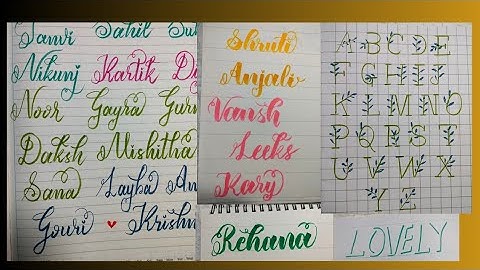 Janvi Sahil
Nikunj Kartik
Noor Gayra
Daksh Mishitha
Sana Layba
Gouri Krishn
Shruti
Anjali
Vansh
Leeks
Kary
Rehana
A B C D E
F G H I J
K L M N O
P Q R S T
U V W X
Y Z
LOVELY